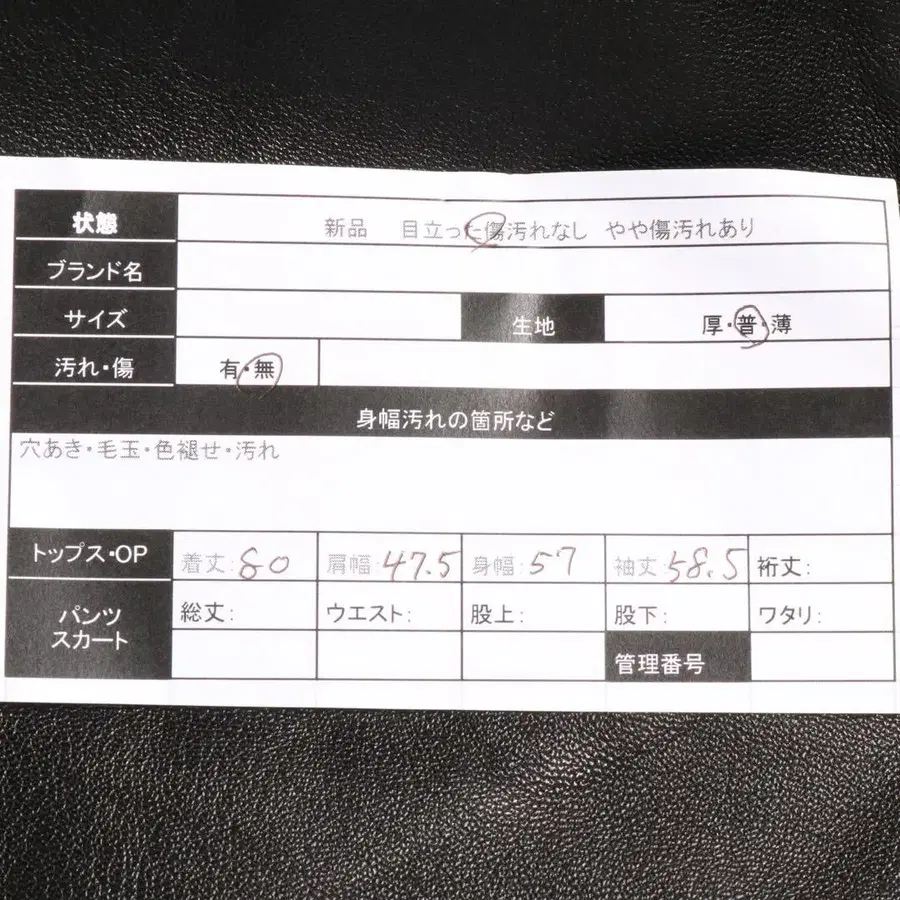 状態 新品 目立った傷汚れなし やや傷汚れあり
ブランド名
サイズ 生地 厚・普・薄
汚れ・傷 有・無
身幅汚れの箇所など
穴あき・毛玉・色褪せ・汚れ
トップス・OP 着丈:80 肩幅:47.5 身幅:57 袖丈:58.5 裄丈:
パンツ 総丈: ウエスト: 股上: 股下: ワタリ:
スカート
管理番号